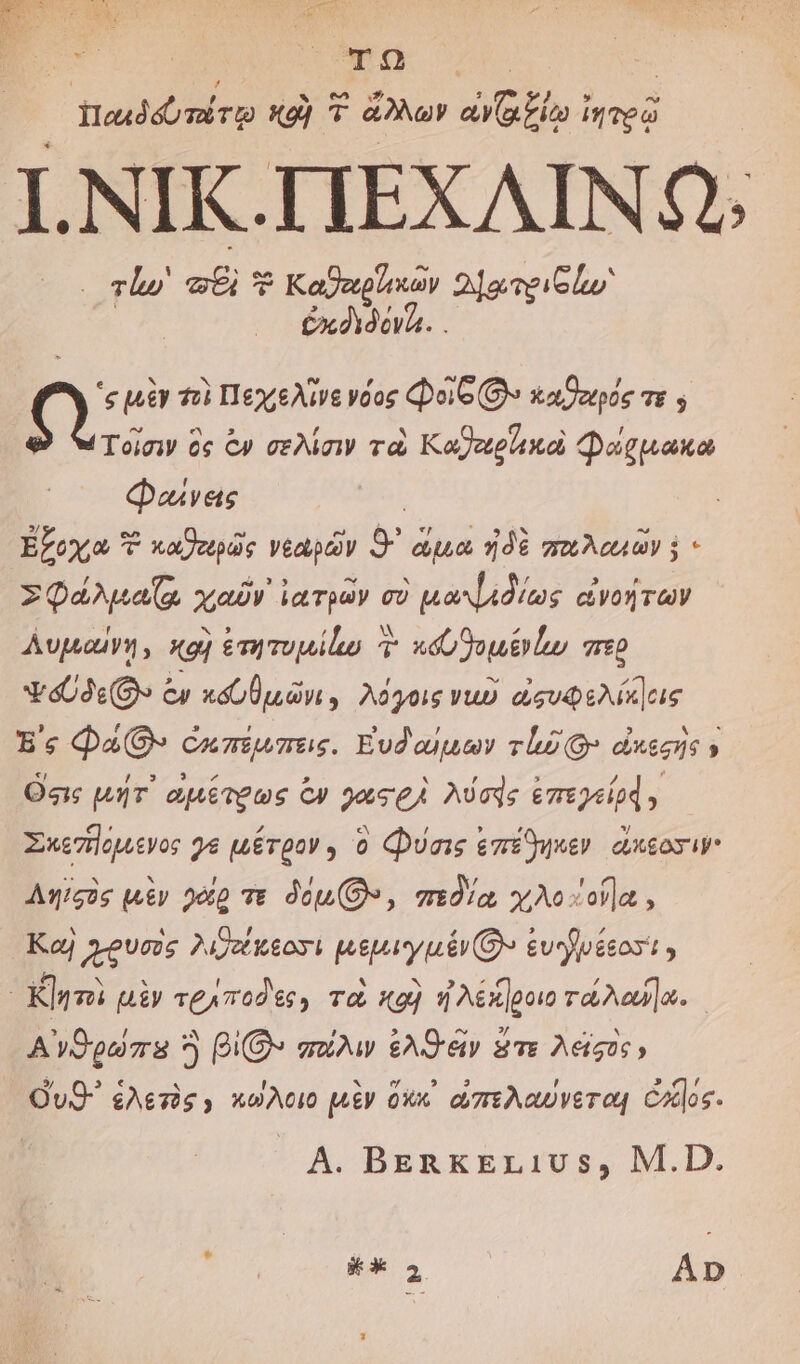 ΤΩ
Παιδδυτάτῳ καὶ τ̃ ἄλλων ἀνταξίῳ ἰητρῷ
I. NIK. ΠΕΧΛΙΝΩ,
τὴν περὶ τ̃ Καθαρτικῶν Διατριβὴν
ἐκδιδόντι.
Ως μὲν τοὶ Πεχελῖνε νόος Φοῖβος καθαρός τε,
Τοῖσιν ὃς ἐν σελίσιν τὰ Καθαρτικὰ Φάρμακα
Φαίνεις
Ἔξοχα τ̃ καθαρῶς νεαρῶν θ' ἅμα ἠδὲ παλαιῶν;
Σφάλματα χαῦν' ἰατρῶν σὺ μαψιδίως ἀνοήτων
Λυμαίνῃ, καὶ ἐτητυμίην τ̃ κευθομένην περ
Ψεύδεος ἐν κευθμῶνι, λόγοις νῦν ἀσυφελίκτοις
Ἐς Φάος ἐκπέμπεις. Ευδαίμων τῆνος ἀκεστὴς,
Ὅστις μήτ' ἀμέτρως ἐν γαστρὶ λύσεις ἐπεγείρει,
Σκεπτόμενος γε μέτρον, ὃ Φύσις ἐπέθηκεν ἄκεσσιν·
Ληϊστὸς μὲν γάρ τε δόμος, πεδία χλοάοντα,
Καὶ χρυσὸς λιθάκεσσι μεμιγμένος ἐυημέεσσι,
Κτητοὶ μὲν τρίποδες, τὰ καὶ ἠλέκτροιο τάλαντα.
Ανθρώπου δὲ βίος πάλιν ἐλθεῖν οὔτε λεϊστὸς,
Οὔθ' ἑλετὸς, κώλοιο μὲν ὅκκ' ἀπελαύνεται ἐκτός.
A. BERKELIUS, M.D.
** 2 AD